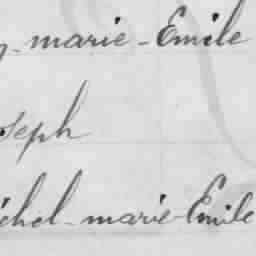 y-marie-Emile
oseph
ichel-marie-Emile